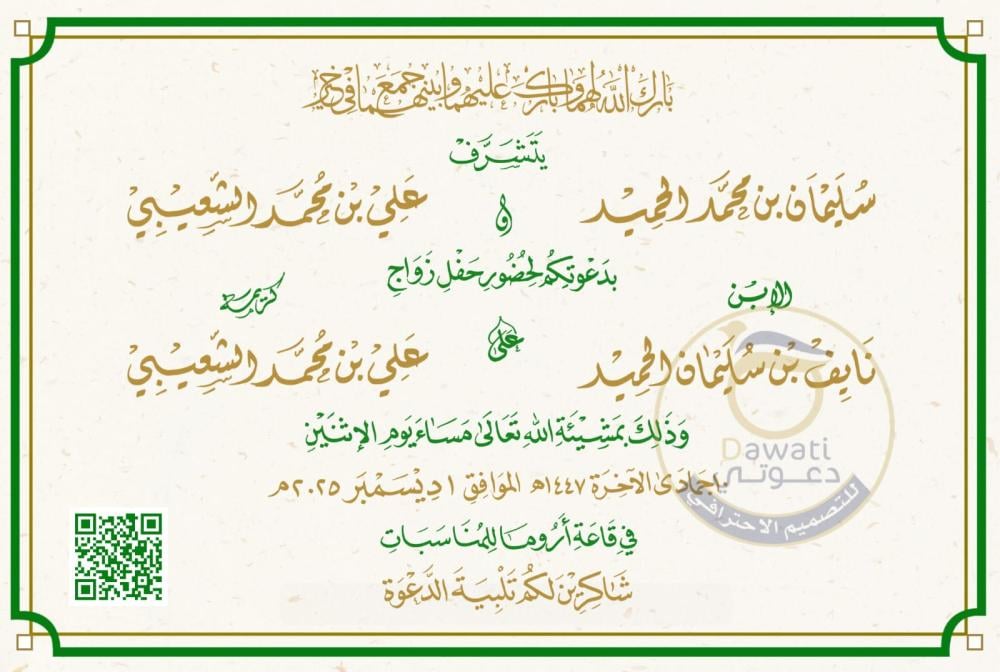 بَارَكَ اللهُ لَهُمَا وَبَارَكَ عَلَيْهِمَا وَجَمَعَ بَيْنَهُمَا فِي خَيْر
يَتَشَرَّفْ
سُلَيْمَان بن مُحَمَّد الحميد
و
عَلِيْ بْن مُحَمَّد الشّعِيْبِيْ
بِدَعْوَتِكُمْ لِحُضُورِ حَفْلِ زَوَاجِ
الإبْن
كريمة
نَايِفْ بْن سُلَيْمَان الحميد
عَلَىٰ
عَلِيْ بْن مُحَمَّد الشّعِيْبِيْ
وَذَلِكَ بِمَشِيْئَةِ اللهِ تَعَالَىٰ مَسَاءَ يَومِ الإِثْنَيْنِ
جُمَادَىٰ الآخِرَة ١٤٤٧هـ الموَافِقِ ١ دِيْسَمْبَر ٢٠٢٥م
فِي قَاعَةِ أَرُومَا لِلمُنَاسَبَاتِ
شَاكِرِيْن لَكُمْ تَلْبِيَةَ الدَّعْوَة
Dawati
دعوتي
للتصميم الاحترافي